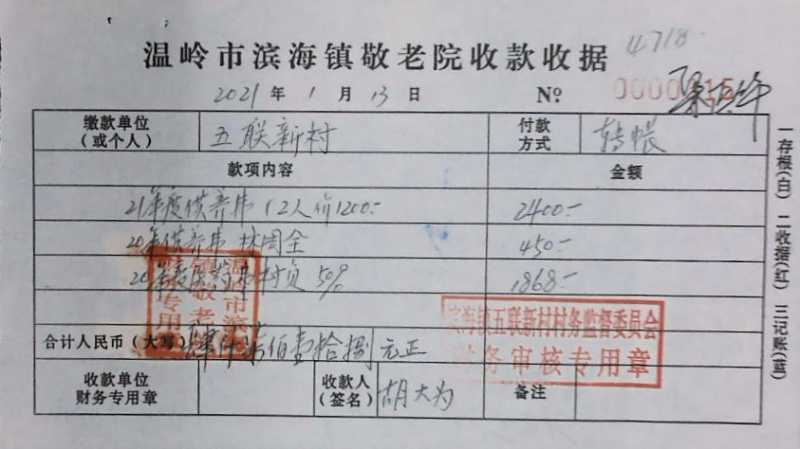 4718-
温岭市滨海镇敬老院收款收据
2021年1月13日 № 0000
缴款单位(或个人) 五联新村 付款方式 转帐
款项内容 金额
21年度供养费(2人 1200- 2400-
20年供养费 林周全 450-
20年度 村负50% 1868-
合计人民币(大写) 肆仟柒佰壹拾捌元正
收款单位财务专用章 收款人(签名) 胡大为 备注
滨海镇五联新村村务监督委员会
财务审核专用章
温岭市滨
镇敬老
专用
一存根(白) 二收据(红) 三记账(蓝)